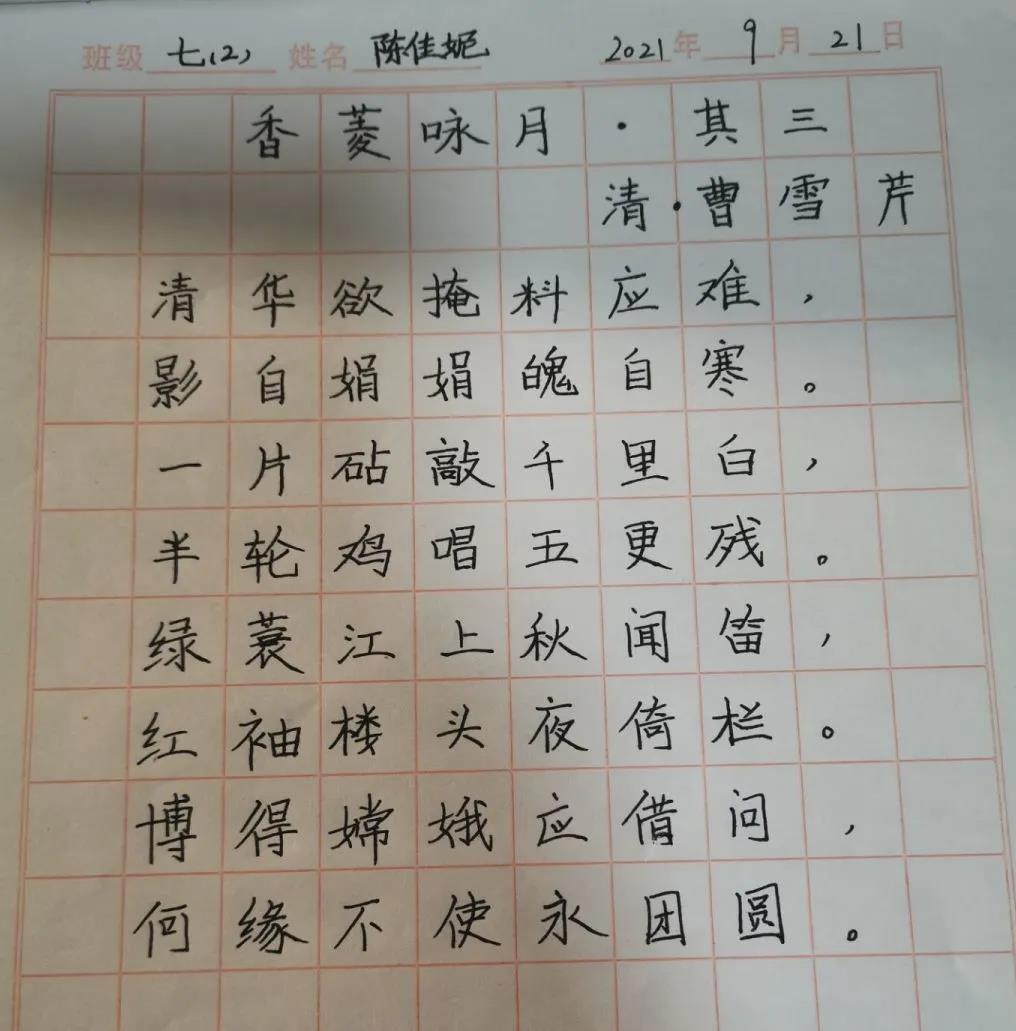 班级 七(2) 姓名 陈佳妮 2021年 9月 21日
香菱咏月·其三
清·曹雪芹
清华欲掩料应难，
影自娟娟魄自寒。
一片砧敲千里白，
半轮鸡唱五更残。
绿蓑江上秋闻笛，
红袖楼头夜倚栏。
博得嫦娥应借问，
何缘不使永团圆。